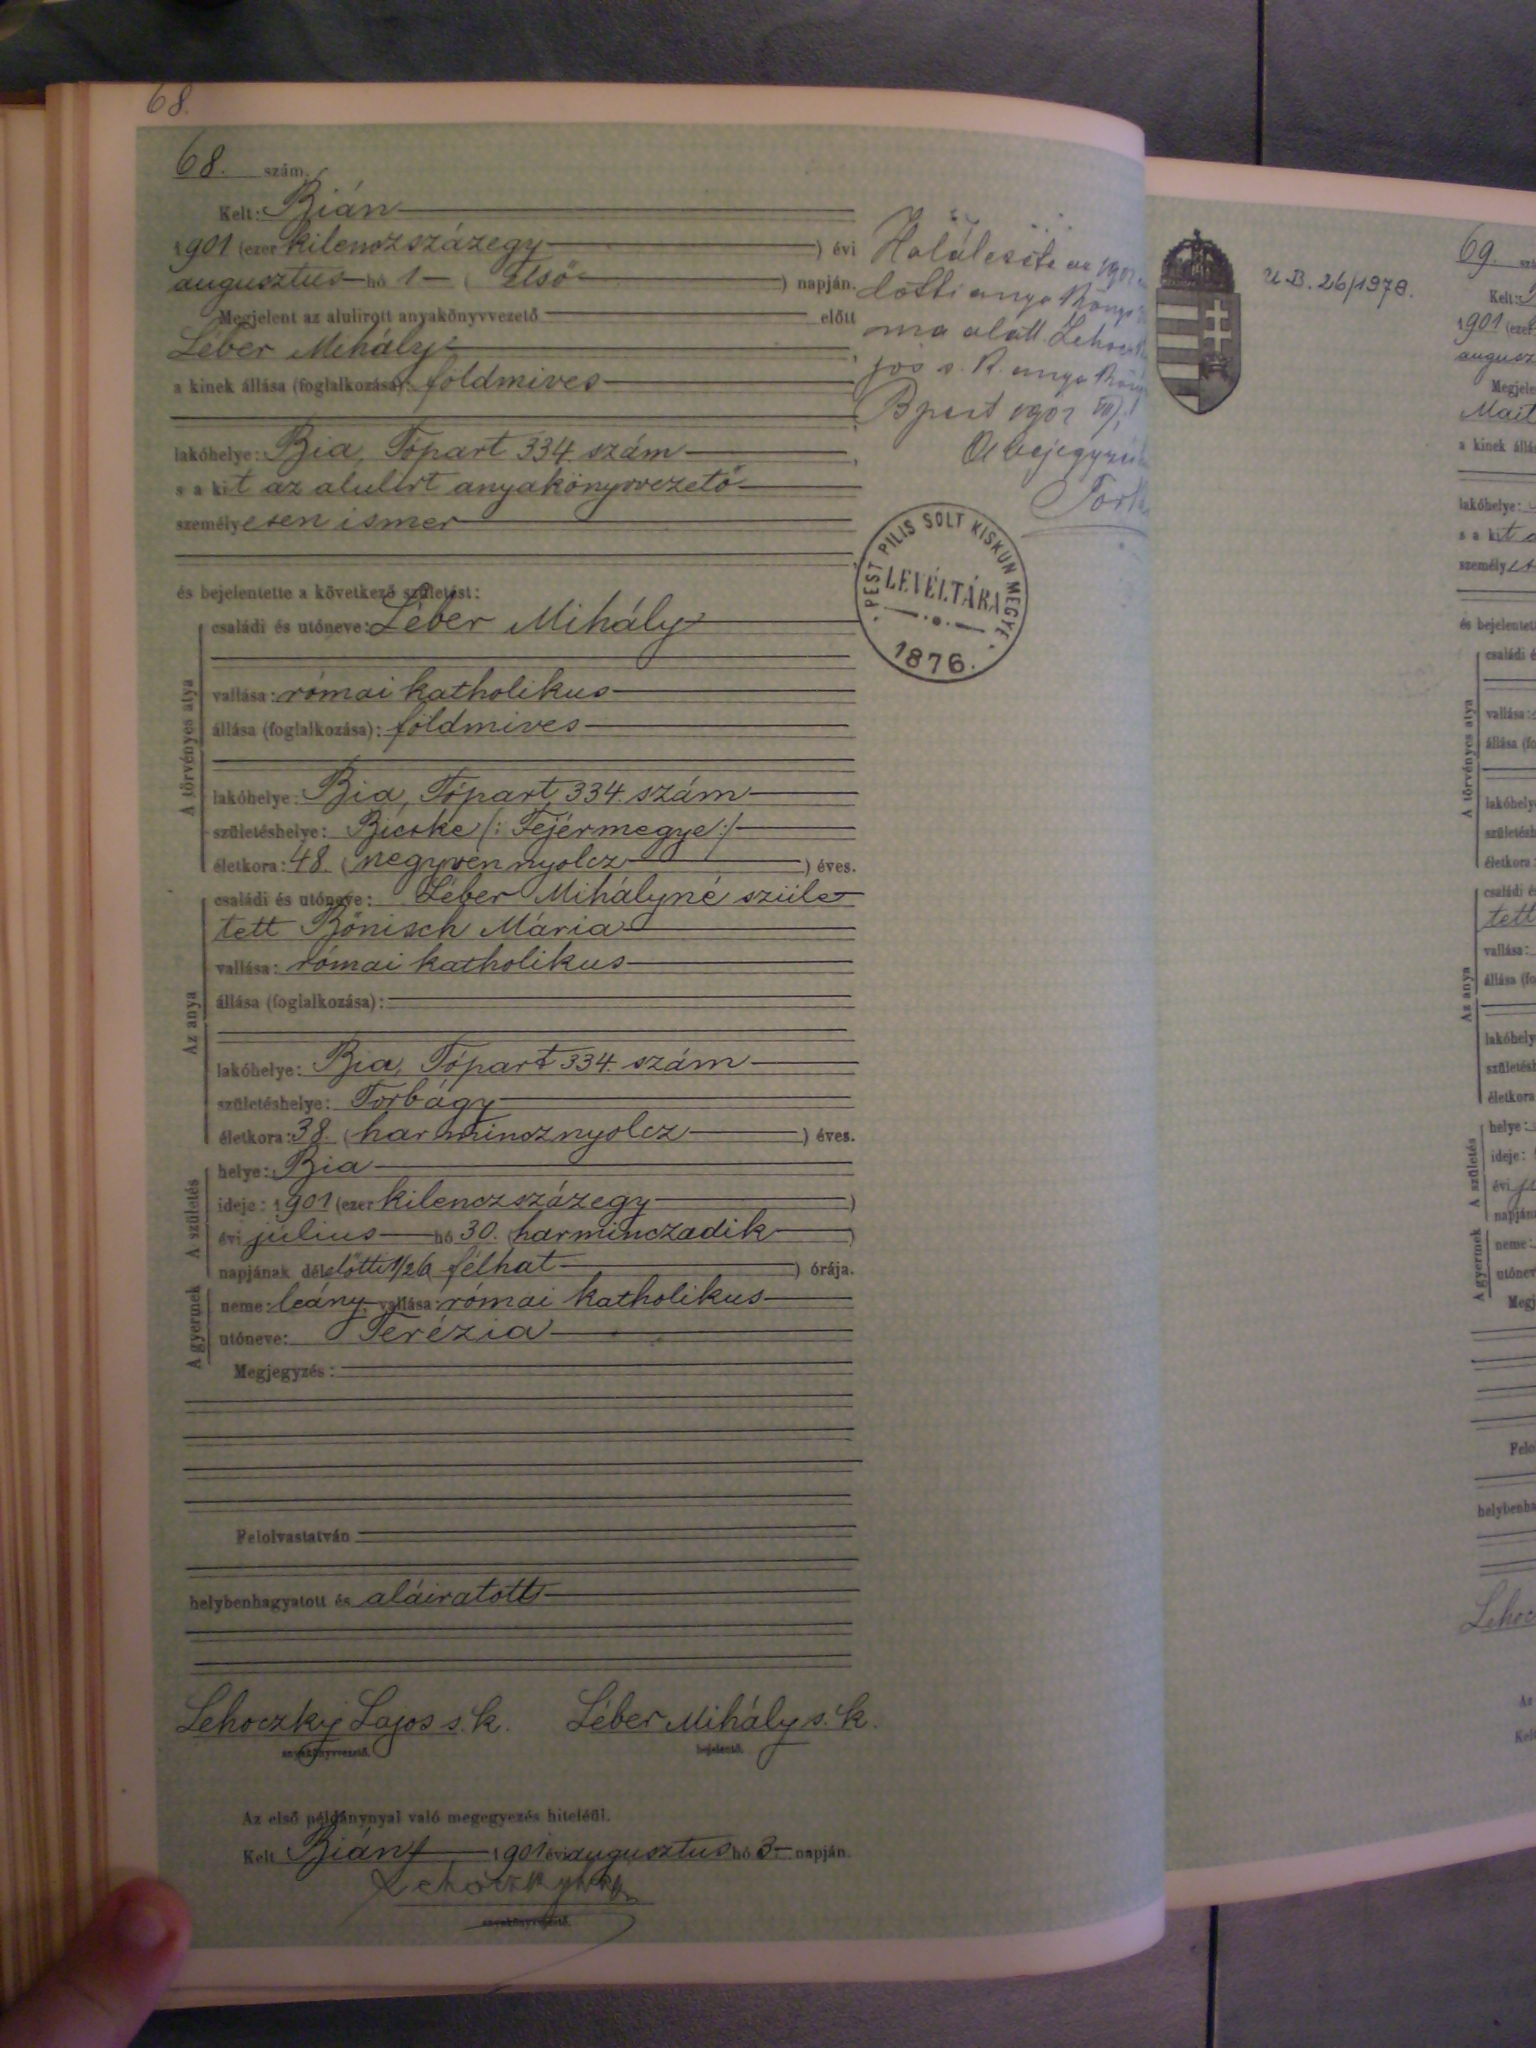 68.
68. szám.
Kelt: Bián
1901 (ezer kilenczszázegy) évi
augusztus hó 1 (első) napján.
Megjelent az alulirott anyakönyvvezető előtt
Léber Mihály
a kinek állása (foglalkozása): földmives
lakóhelye: Bia, Tópart 334. szám,
s a kit az alulírt anyakönyvvezető
személyesen ismer
és bejelentette a következő születést:
A törvényes atya
családi és utóneve: Léber Mihály
vallása: római katholikus
állása (foglalkozása): földmives
lakóhelye: Bia, Tópart 334. szám
születéshelye: Bicske (: Fejérmegye :)
életkora: 48. (negyvennyolcz) éves.
Az anya
családi és utóneve: Léber Mihályné szüle
tett Bőnisch Mária
vallása: római katholikus
állása (foglalkozása):
lakóhelye: Bia, Tópart 334. szám
születéshelye: Torbágy
életkora: 38. (harmincznyolcz) éves.
A születés
helye: Bia
ideje: 1901 (ezer kilenczszázegy)
évi július hó 30. (harminczadik)
napjának délelőtti 1/26 (félhat) órája.
A gyermek
neme: leány, vallása: római katholikus
utóneve: Terézia
Megjegyzés:
Felolvastatván
helybenhagyatott és aláiratott
Lehoczky Lajos s. k. Léber Mihály s. k.
anyakönyvvezető. bejelentő.
Az első példánynyal való megegyezés hiteléül.
Kelt Bián 1901 évi augusztus hó 3 napján.
Lehoczky
anyakönyvvezető.
Halálesete az 190
lotti anya
ma alatt Lehocz
jos s. k. anya
Bpest 190
A bejegyzés
PEST PILIS SOLT KISKUN MEGYE
LEVÉLTÁRA
1876.
U.B. 26/1978.
69.
Kelt:
1901 (ezer
augusz
Megjele
a kinek állá
lakóhelye:
s a kit
személy
és bejelentet
A törvényes atya
családi é
vallása:
állása (fo
lakóhely
születésh
életkora:
Az anya
családi é
tett
vallása:
állása (fo
lakóhely
születésh
életkora
A születés
helye:
ideje:
évi
napján
A gyermek
neme:
utónev
Megj
Felo
helybenha
Lehoc
Az
Kel